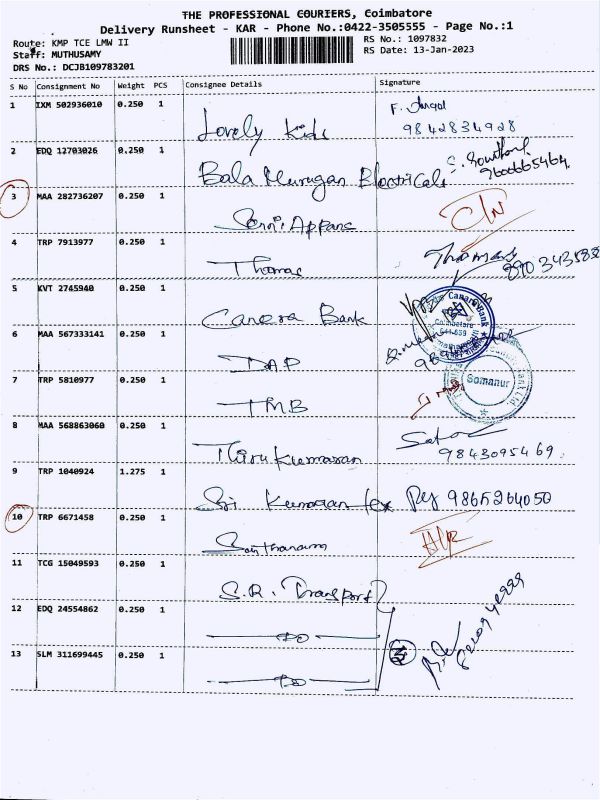 THE PROFESSIONAL COURIERS, Coimbatore
Delivery Runsheet - KAR - Phone No.:0422-3505555 - Page No.:1
Route: KMP TCE LMW II
RS No.: 1097832
Staff: MUTHUSAMY
RS Date: 13-Jan-2023
DRS No.: DCJB109783201
S No Consignment No Weight PCS Consignee Details Signature
1 IXM 502936010 0.250 1 Lovely Kids 9842834928
2 EDQ 12703026 0.250 1 Bala Murugan Electricals
3 MAA 282736207 0.250 1
4 TRP 7913977 0.250 1 Thomas Thomas
5 KVT 2745940 0.250 1 Canera Bank
6 MAA 567333141 0.250 1 DAP
7 TRP 5810977 0.250 1 TMB
Canara Bank
Coimbatore
Somanur
8 MAA 568863060 0.250 1 Thirukumaran 9843095469
9 TRP 1040924 1.275 1 Sri Kumaran Tex
10 TRP 6671458 0.250 1 Santhanam
11 TCG 15049593 0.250 1 S.R. Transport
12 EDQ 24554862 0.250 1 DO
13 SLM 311699445 0.250 1 DO 3